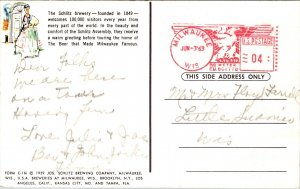 The Schlitz brewery — founded in 1849 — welcomes 100,000 visitors every year from every part of the world. In the beauty and comfort of the Schlitz Assembly, they receive a warm greeting before touring the home of The Beer that Made Milwaukee Famous.
MILWAUKEE
JUN-7'63
WIS
U.S. POSTAGE
04
THIS SIDE ADDRESS ONLY
Dear Folks
We are here
on a Tour
Having fun
Love
Mr & Mrs
Wis
FORM C-1N © 1959 JOS. SCHLITZ BREWING COMPANY, MILWAUKEE, WIS., U.S.A. BREWERIES AT MILWAUKEE, WIS., BROOKLYN, N.Y., LOS ANGELES, CALIF., KANSAS CITY, MO. AND TAMPA, FLA.